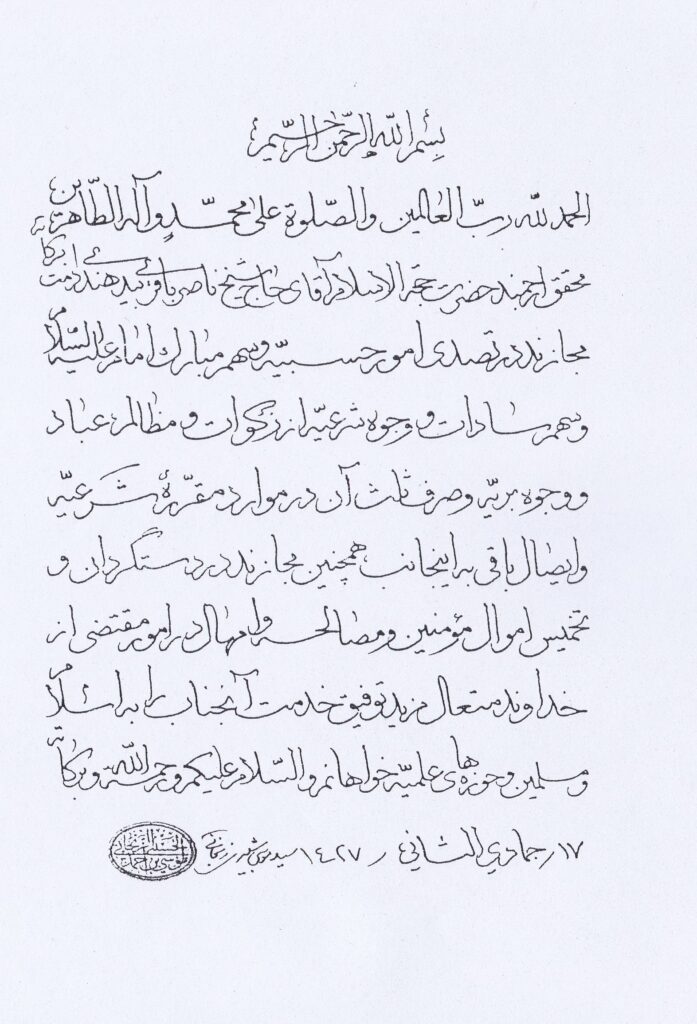 بسم الله الرحمن الرحیم
الحمد لله رب العالمین والصلوة علی محمد وآله الطاهرین
محقق ارجمند حضرت حجة الاسلام آقای حاج شیخ ناصر باقری بیدهندی دامت برکاته
مجازند در تصدی امور حسبیّه وسهم مبارك امام علیه السّلام
وسهم سادات و وجوه شرعیّه از زکوات و مظالم عباد
و وجوه بریّه وصرف ثلث آن در موارد مقرّرهٔ شرعیّه
وایصال باقی به اینجانب همچنین مجازند در دستگردان و
تخمیس اموال مؤمنین ومصالحه وامهال در امور مقتضی از
خداوند متعال مزید توفیق خدمت آنجناب را به اسلام
ومسلمین وحوزه های علمیّه خواهانم والسّلام علیکم ورحمة الله وبرکاته
١٧ رجمادي الثاني ر ١٤٢٧ سید موسی شبیری زنجانی